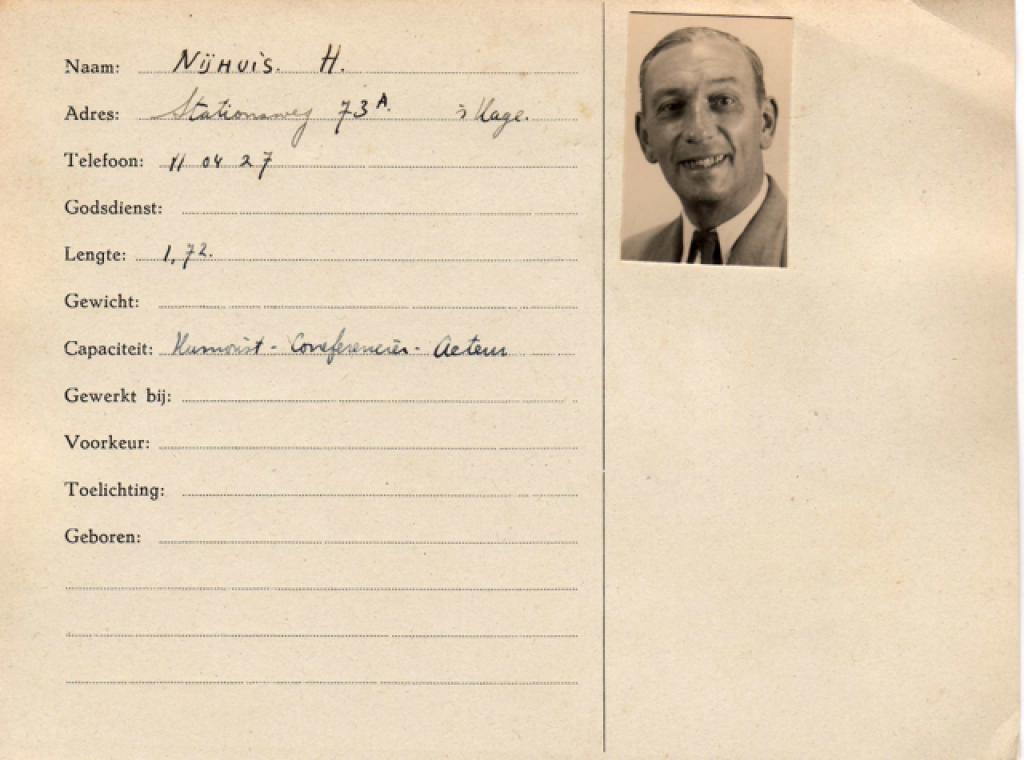 Naam: NIJHUIS. H.
Adres: Stationsweg 73A. 's Hage.
Telefoon: 11 04 27
Godsdienst:
Lengte: 1,72.
Gewicht:
Capaciteit: Humorist - Conferencier - Acteur
Gewerkt bij:
Voorkeur:
Toelichting:
Geboren: